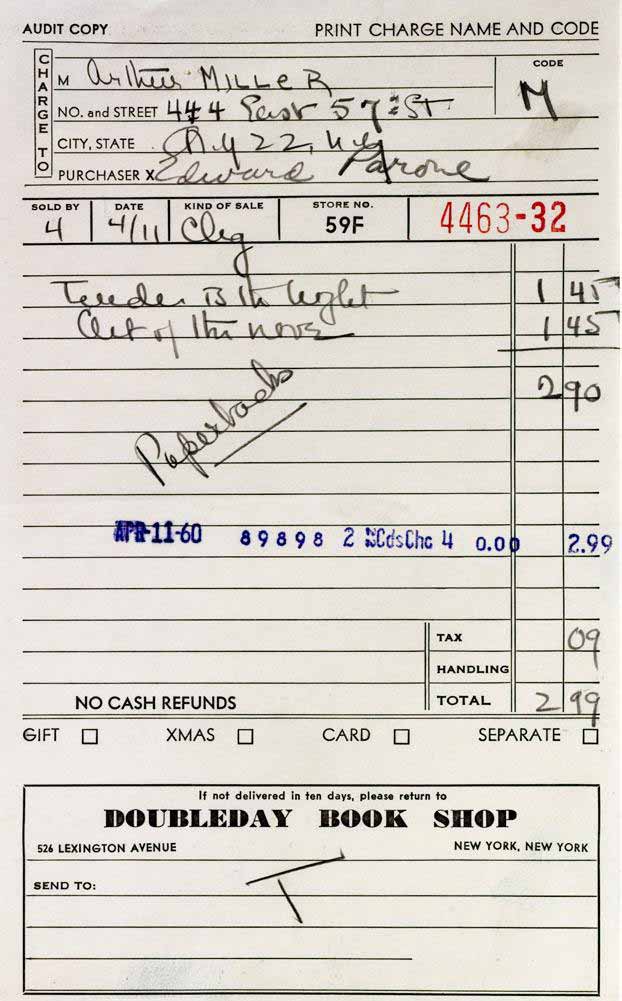 AUDIT COPY PRINT CHARGE NAME AND CODE
CHARGE TO
M Arthur MILLER CODE M
NO. and STREET 444 East 57 ST
CITY, STATE N.Y 22, N.Y
PURCHASER X Edward Parone
SOLD BY 4 DATE 4/11 KIND OF SALE Chg STORE NO. 59F 4463-32
Tender Is the Night 1 45
Art of the Novel 1 45
2 90
Paperbacks
APR-11-60 89898 2 CdsChc 4 0.00 2.99
TAX 09
HANDLING
NO CASH REFUNDS TOTAL 2 99
GIFT XMAS CARD SEPARATE
If not delivered in ten days, please return to
DOUBLEDAY BOOK SHOP
526 LEXINGTON AVENUE NEW YORK, NEW YORK
SEND TO: